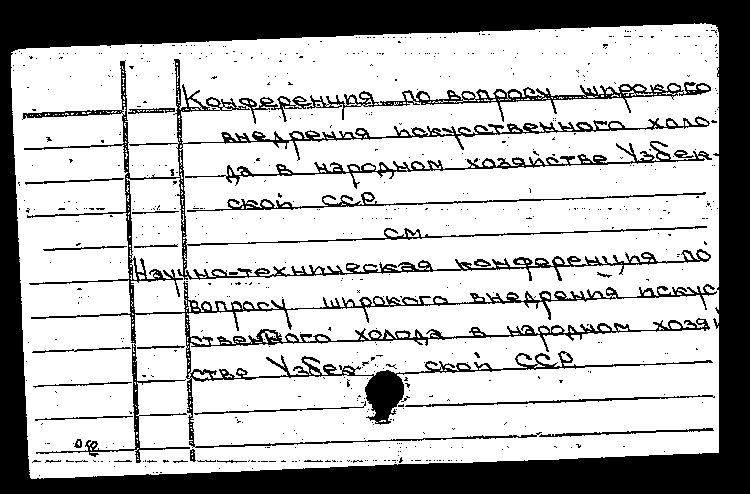 Конференция по вопросу широкого
внедрения искусственного холо-
да в народном хозяйстве Узбек-
ской ССР
см.
Научно-техническая конференция по
вопросу широкого внедрения искус-
ственного холода в народном хозяй
стве Узбек ской ССР